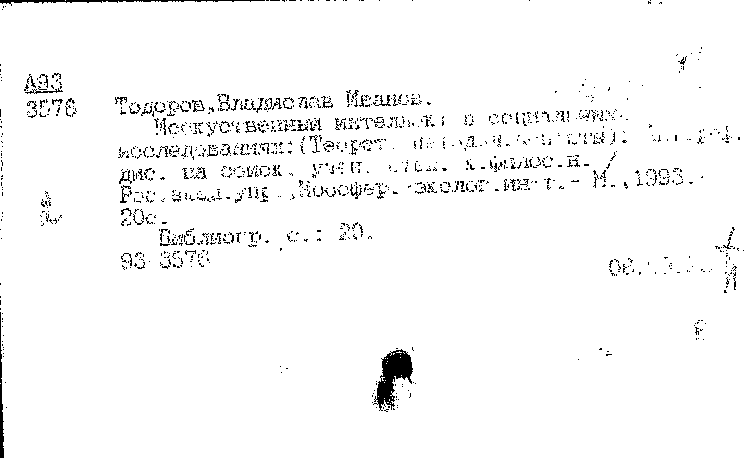 А93
3576 Тодоров,Владислав Иванов.
Искуственный интеллект в социальных
исследованиях:(Теорет. аспекты):
дис. на соиск. учен. степ. к.филос.н. /
Рос.акад.упр.,Ноосфер.-эколог.ин-т.- М.,1993.-
20с.
Библиогр. с.: 20.
93-3576